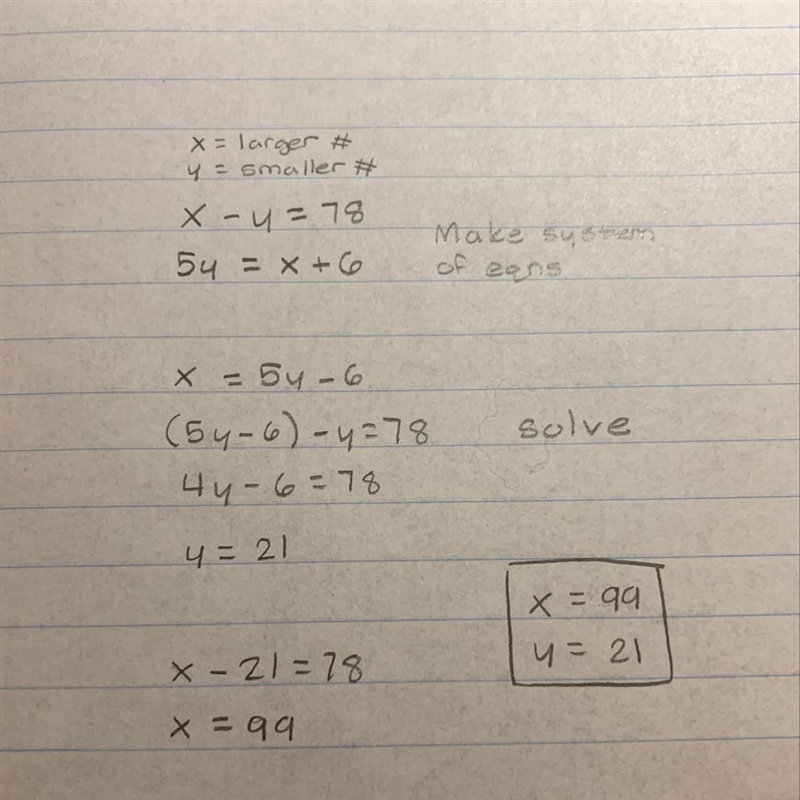 x = larger #
y = smaller #
x - y = 78
5y = x + 6
Make system
of eqns
x = 5y - 6
(5y - 6) - y = 78
solve
4y - 6 = 78
y = 21
x - 21 = 78
x = 99
x = 99
y = 21